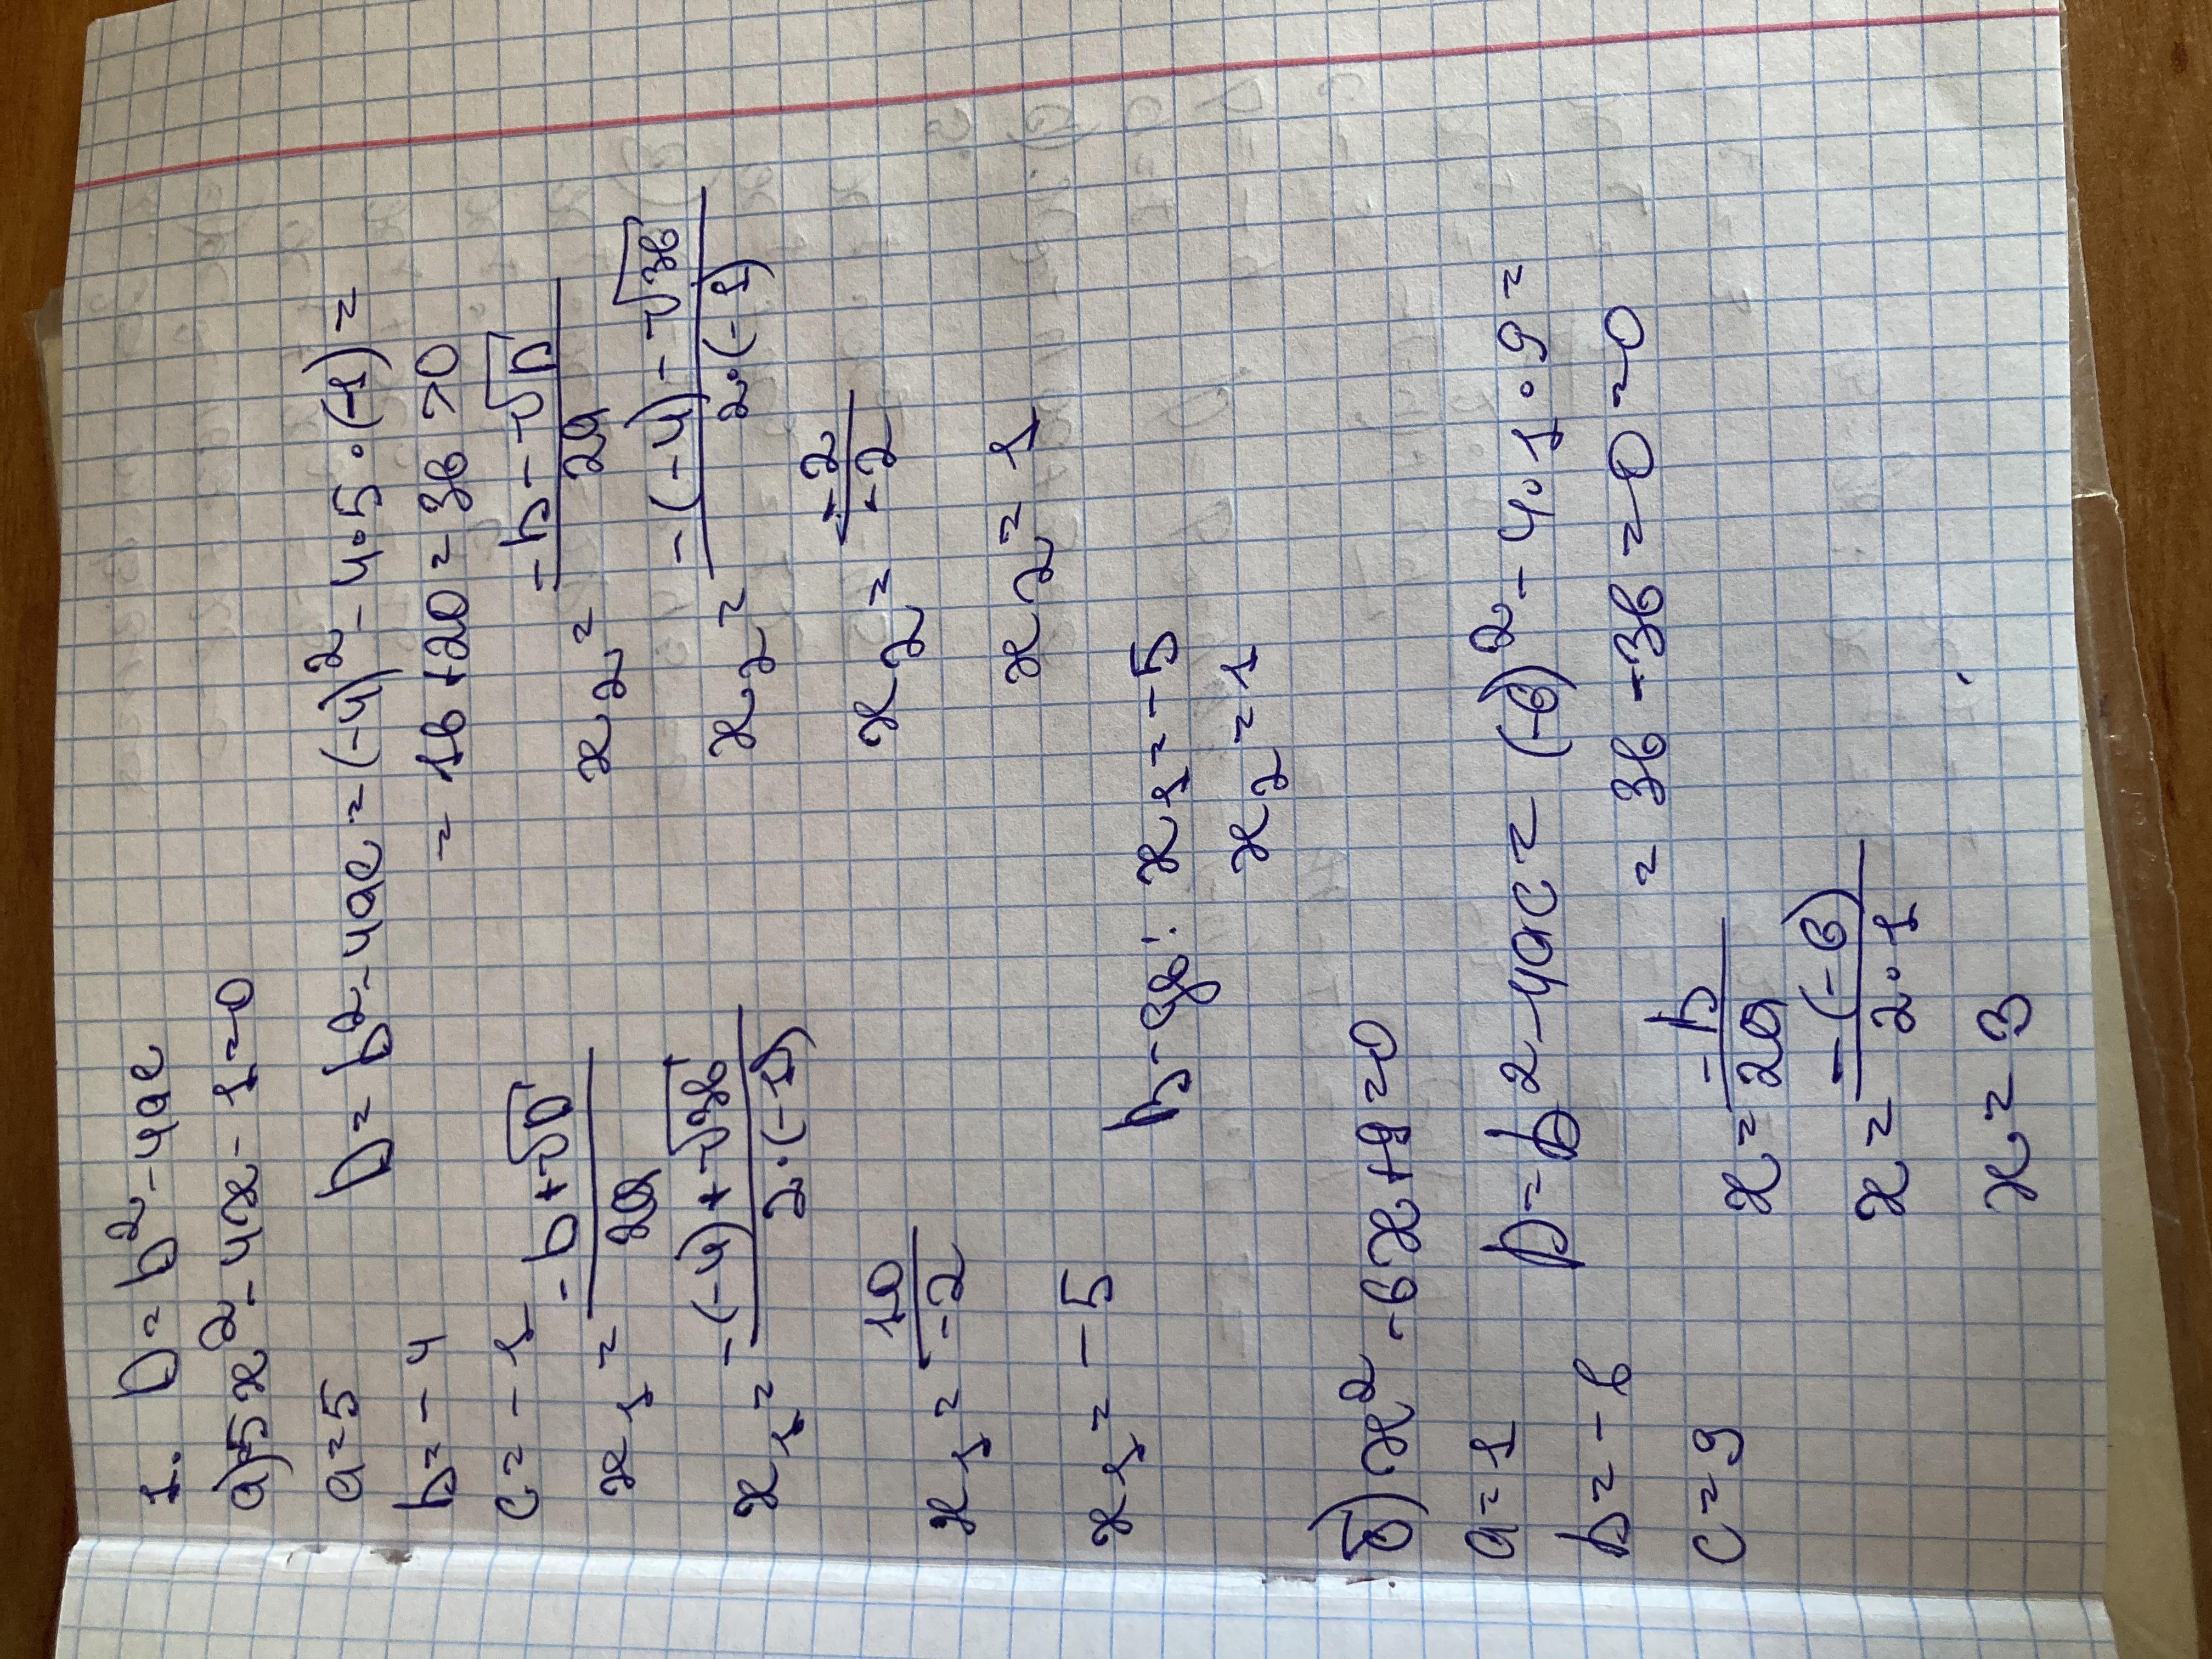 1. D = b² - 4ac
a) 5x² - 4x - 1 = 0
a = 5
D = b² - 4ac = (-4)² - 4·5·(-1) =
b = -4
= 16 + 20 = 36 > 0
c = -1
x₁ = (-b + √D)/(2a)
x₂ = (-b - √D)/(2a)
x₁ = (-(-4) + √36)/(2·(-1))
x₂ = (-(-4) - √36)/(2·(-1))
x₁ = 10/(-2)
x₂ = (-2)/(-2)
x₁ = -5
x₂ = 1
В-дь: x₁ = -5
x₂ = 1
б) x² - 6x + 9 = 0
a = 1
D = b² - 4ac = (-6)² - 4·1·9 =
b = -6
= 36 - 36 = 0 = 0
c = 9
x = -b/(2a)
x = -(-6)/(2·1)
x = 3